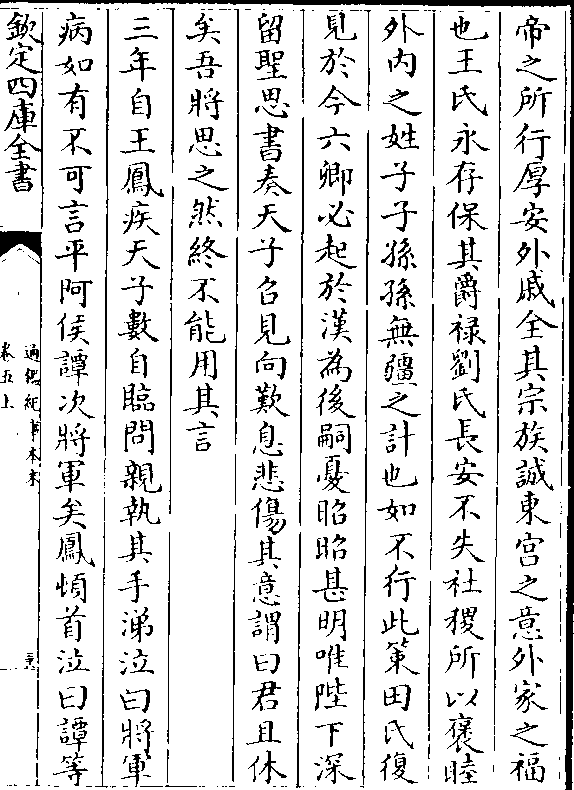 帝之所行厚安外戚全其宗族誠東宫之意外家之福
也王氏永存保其爵禄劉氏長安不失社稷所以褒睦
外内之姓子子孫孫無疆之計也如不行此策田氏復
見於今六卿必起於漢為後嗣憂昭昭甚明唯陛下深
留聖思書奏天子召見向歎息悲傷其意謂曰君且休
矣吾將思之然終不能用其言
三年自王鳳疾天子數自臨問親執其手涕泣曰將軍
病如有不可言平阿侯譚次將軍矣鳳頓首泣曰譚等
欽定四庫全書
通鑑紀事本末
卷五上